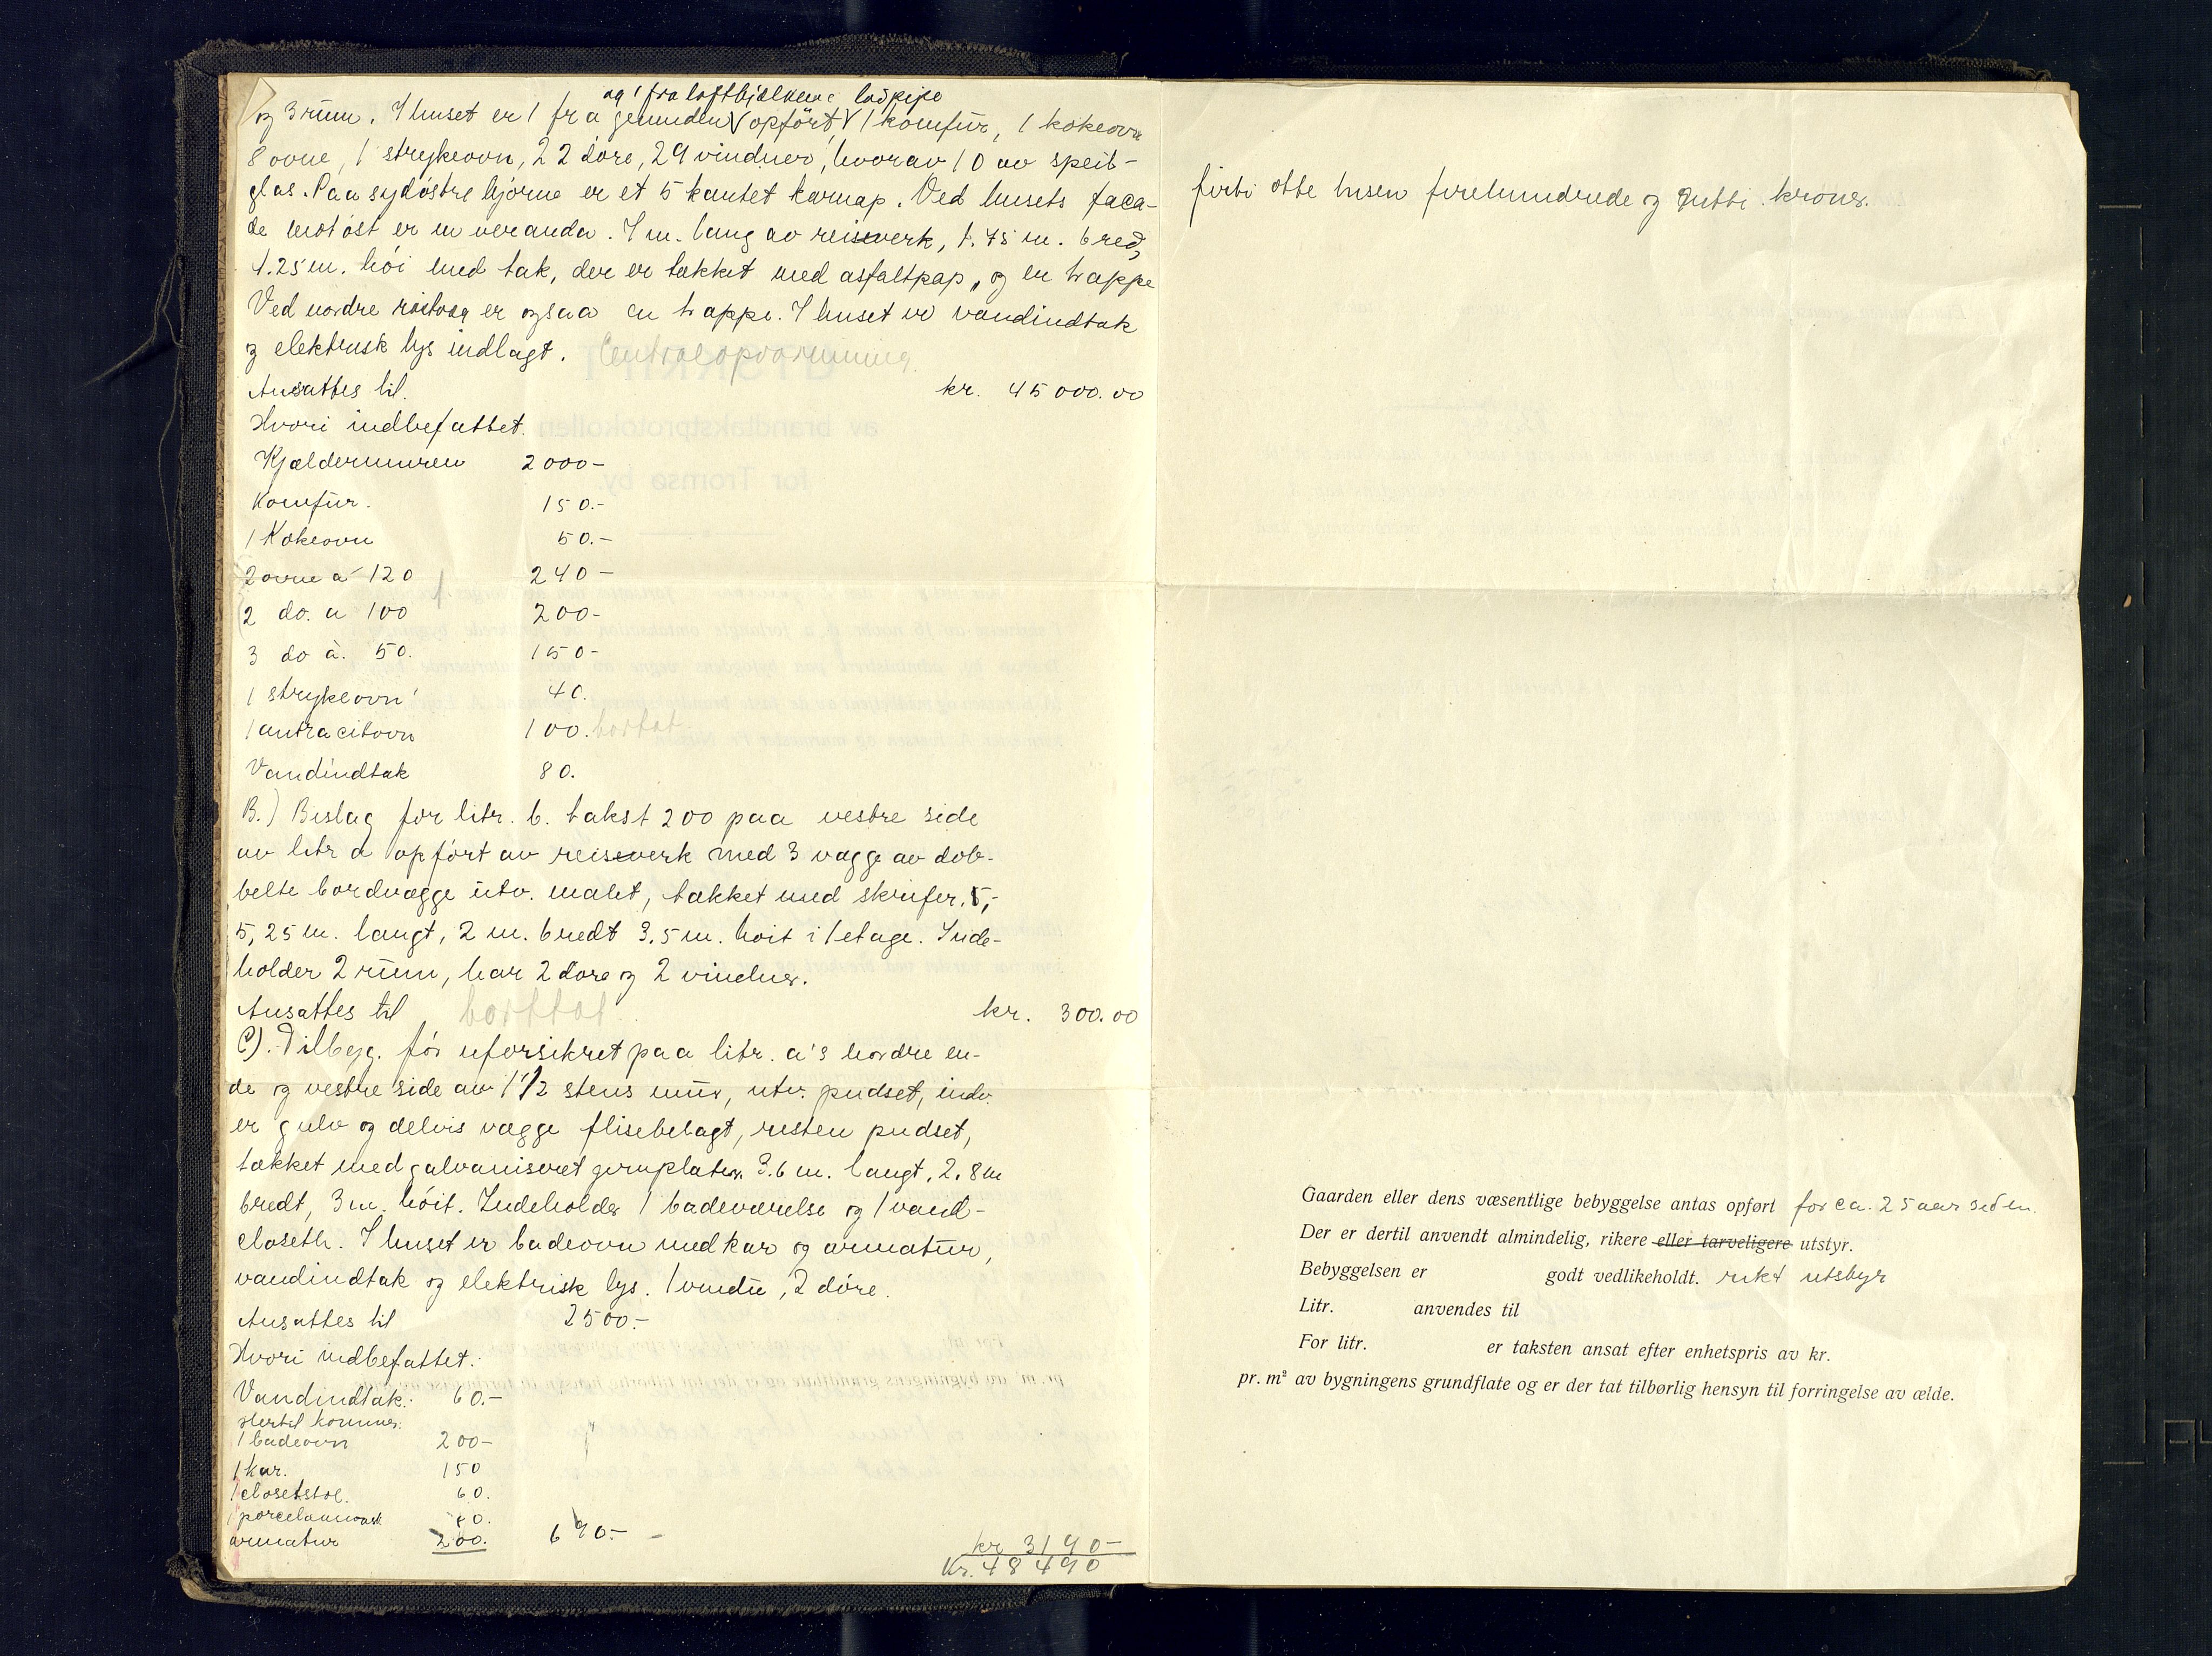 og 1 fra loftbjælkene lodpipe
og 3 rum. I huset er 1 fra grunden opført, 1 komfur, 1 kokeovn
8 ovne, 1 strykeovn, 22 døre, 29 vinduer, hvorav 10 av speil-
glas. Paa sydøstre hjørne er et 5 kantet karnap. Ved husets faca-
de mot øst er en veranda. 7 m. lang av reisverk, 1.75 m. bred,
4.25 m. høi med tak, der er tækket med asfaltpap, og en trappe
Ved nordre er ogsaa en trappe. I huset er vandindtak
og elektrisk lys indlagt. Centralopvarmning.
Ansættes til. kr. 45000.00
Hvori indbefattet.
Kjældermuren 2000-
Komfur. 150.-
1 Kokeovn 50.-
2 ovne a 120 240-
2 do. a 100 200-
3 do à. 50. 150-
1 strykeovn 40.
1 antracitovn 100. borttat
Vandindtak 80.
B.) Bislag før litr. b. takst 200 paa vestre side
av litr a opført av reisverk med 3 vægge av dob-
belte bordvægge utv. malet, tækket med skifer,
5,25 m. langt, 2 m. bredt 3.5 m. høit i 1 etage. Inde-
holder 2 rum, har 2 døre og 2 vinduer.
Ansættes til borttat kr. 300.00
C). Tilbyg. før uforsikret paa litr. a's nordre en-
de og vestre side av 1 1/2 stens mur, utv. pudset, indv.
er gulv og delvis vægge flisebelagt, resten pudset,
tækket med galvaniseret jernplater. 3.6 m. langt, 2.8 m
bredt, 3 m. høit. Indeholder 1 badeværelse og 1 vand-
closeth. I huset er badeovn med kar og armatur,
vandindtak og elektrisk lys. 1 vindu, 2 døre.
Ansættes til 2500.-
Hvori indbefattet:
Vandindtak: 60.-
Hertil kommer:
1 badeovn 200-
1 kar. 150
1 closetstol. 60.
1 porcelænsvask 80.
armatur 200. 690.-
kr 3190-
Kr. 48490
firti otte tusen firehundrede og nitti kroner.
Gaarden eller dens væsentlige bebyggelse antas opført for ca. 25 aar siden.
Der er dertil anvendt almindelig, rikere eller tarveligere utstyr.
Bebyggelsen er godt vedlikeholdt. rikt utstyr
Litr. anvendes til
For litr. er taksten ansat efter enhetspris av kr.
pr. m² av bygningens grundflate og er der tat tilbørlig hensyn til forringelse av ælde.